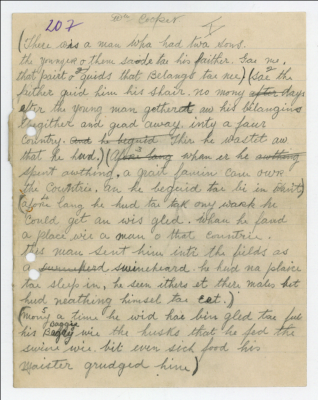 207 Mr Cocker I
(There wis a man wha had twa sons
the younger o them saide tae his faither. Gae me,
that pairt o guids that Belangs tae me) (Sae the
faither gied him his shair. no mony after days
efter the young man gotherot aw his belangins
thegither and gaed away inty a faur
Country. And he begind Ther he wastet aw
that he hud.) (Afore lang whan er he anthing
spent awthing, a grait famin cam owr
the Countrie. An he beguid tae bi in Want)
afore lang he hud tae tak ony wark he
Could get an wis gled. Whan he fand
a place wie a man o that countrie.
This man sent him intae the fields as
a swineherd swineheard he hud na plaice
tae sleep in, he seen ithers at there males bit
hud neathing himsel tae eat.)
(Mony a time he wid has bin gled tae fus
his Baggy Baggie wie the husks that he fed the
swine wie. bit even sich food his
Maister grudged him)